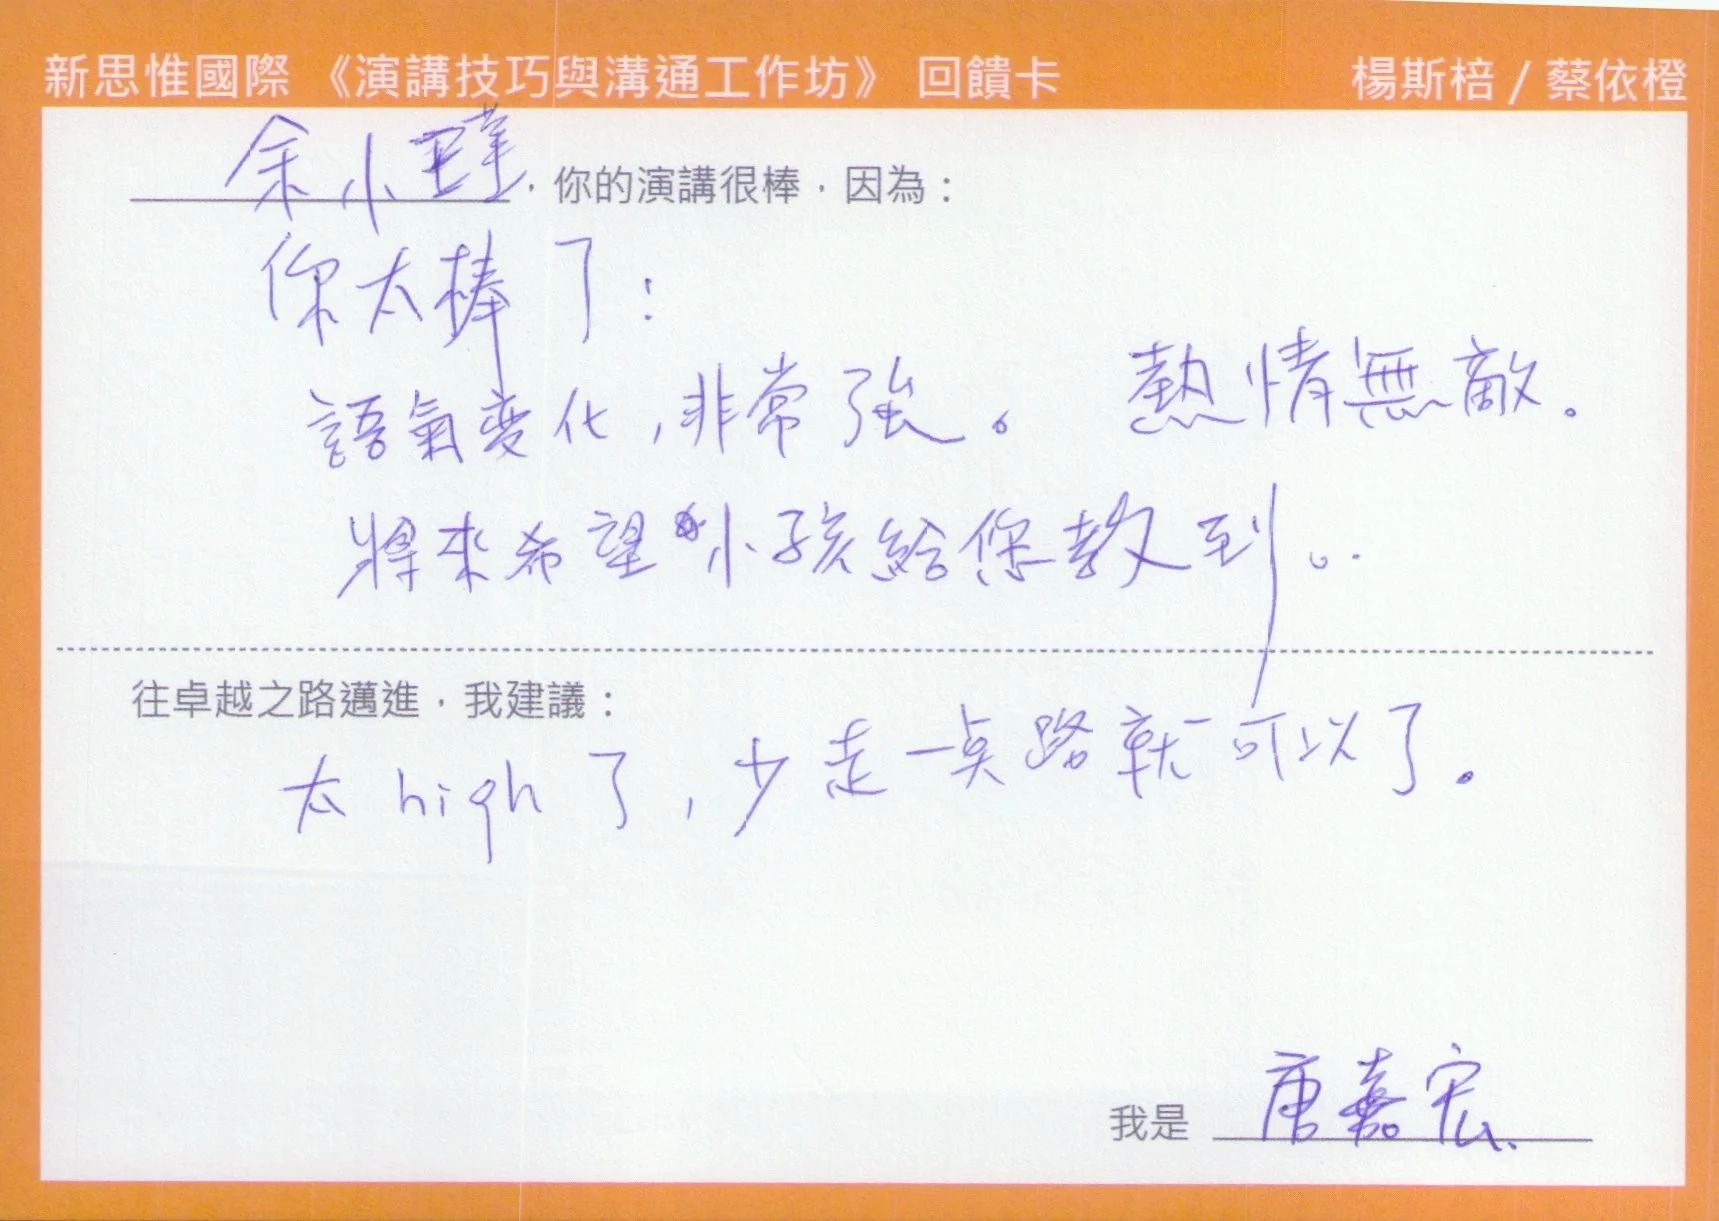 新思惟國際 《演講技巧與溝通工作坊》 回饋卡 楊斯棓 / 蔡依橙
余小，你的演講很棒，因為：
你太棒了：
語氣变化，非常強。 熱情無敵。
將來希望小孩給您教到。
往卓越之路邁進，我建議：
太 high 了，少走一点路就可以了。
我是 唐嘉宏